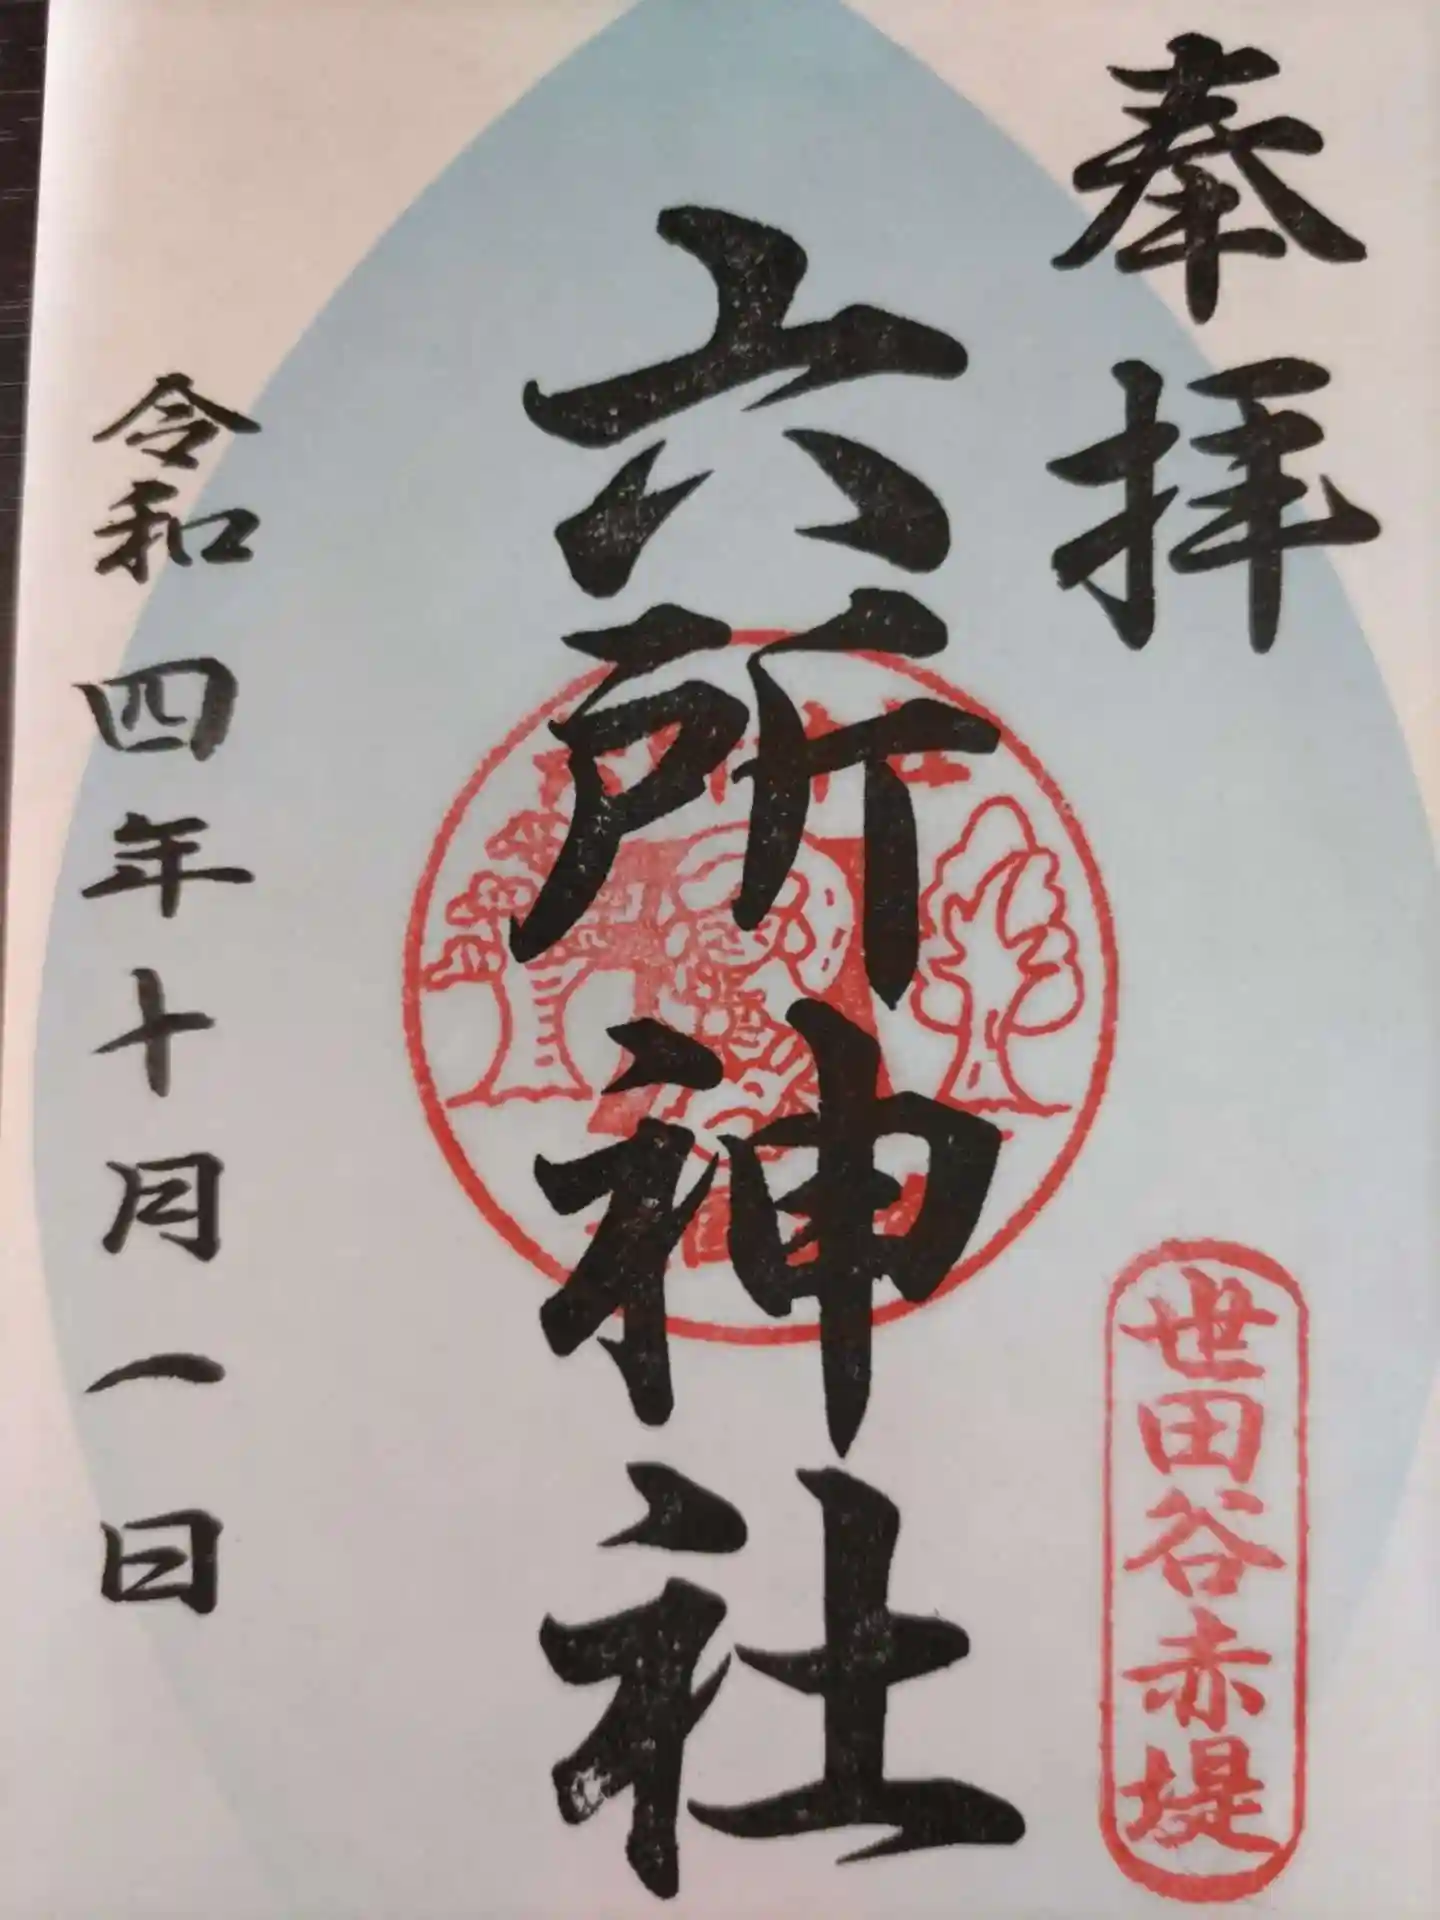 奉拝
六所神社
世田谷赤堤
令和四年十月一日